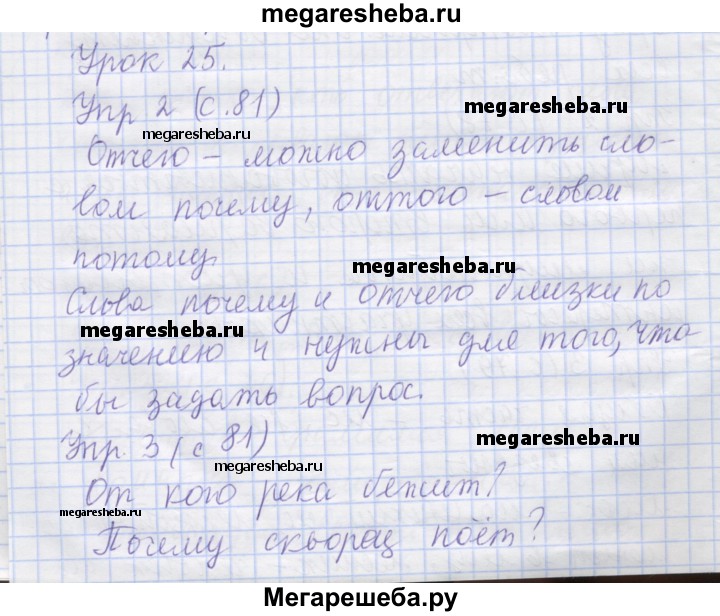 megaresheba.ru
Урок 25.
Упр 2 (с.81)
megaresheba.ru
megaresheba.ru
Отчего – можно заменить сло-
вом почему, оттого – словом
потому.
megaresheba.ru
Слова почему и отчего близки по
megaresheba.ru
значению и нужны для того, что
бы задать вопрос.
Упр. 3 (с 81)
megaresheba.ru
megaresheba.ru
От кого река бежит?
megaresheba.ru
megaresheba.ru
Почему скворец поёт?
Мегарешеба.ру